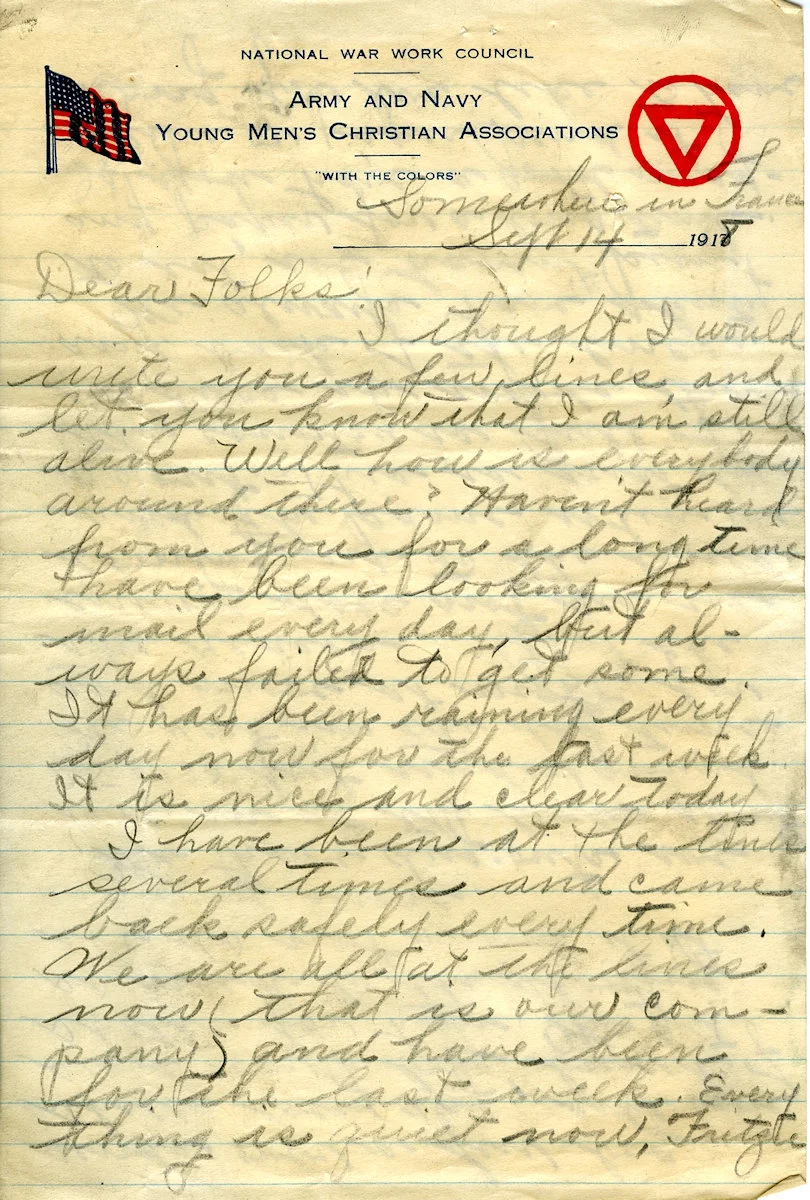 NATIONAL WAR WORK COUNCIL
ARMY AND NAVY
YOUNG MEN'S CHRISTIAN ASSOCIATIONS
"WITH THE COLORS"
Somewhere in France
Sept 14 1918
Dear Folks!
I thought I would
write you a few lines and
let you know that I am still
alive. Well how is everybody
around there? Haven't heard
from you for a long time
have been looking for
mail every day, but al-
ways failed to get some.
It has been raining every
day now for the last week.
It is nice and clear today
I have been at the lines
several times and came
back safely every time.
We are all at the lines
now (that is our com-
pany) and have been
for the last week. Every
thing is quiet now, Fritzie